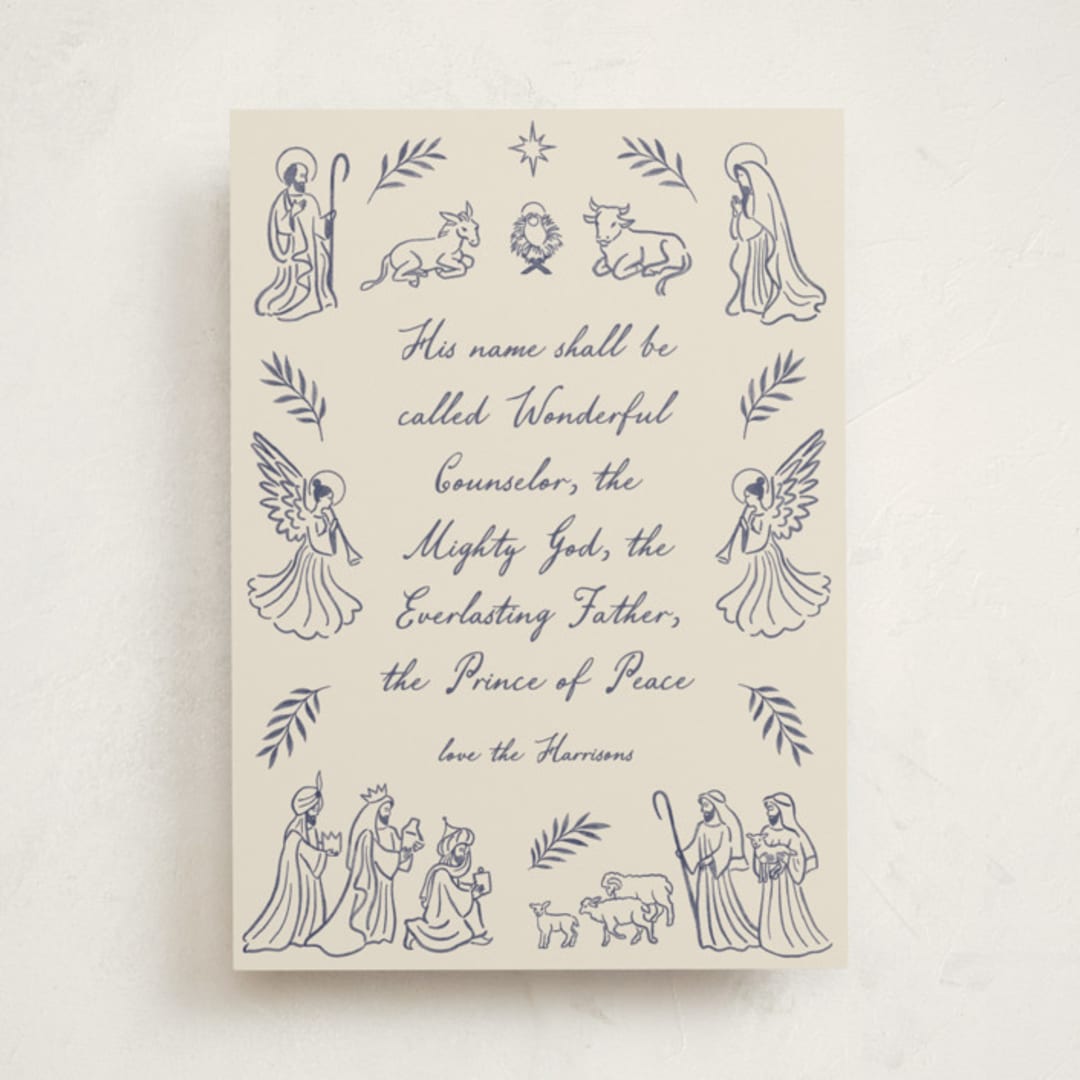 His name shall be
called Wonderful
Counselor, the
Mighty God, the
Everlasting Father,
the Prince of Peace
love the Harrisons